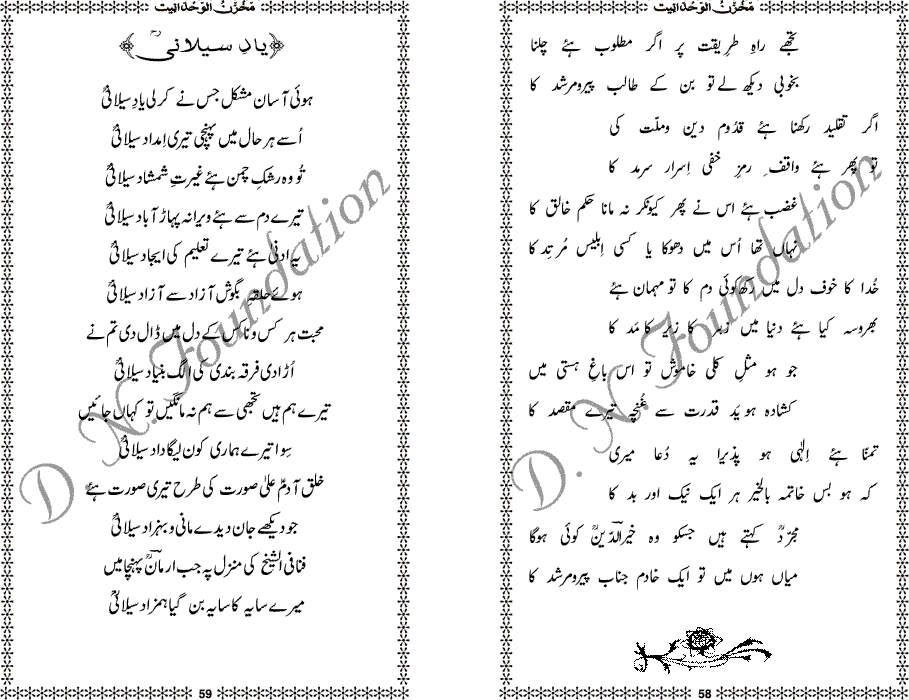 مَخْزَنُ الوَحْدَانِیت
تجھے راہِ طریقت پر اگر مطلوب ہئے چلنا
بخوبی دیکھ لے تو بن کے طالب پیرومرشد کا
اگر تقلید رکھنا ہئے قدُوم دین وملّت کی
تو پھر ہئے واقفِ رمزِ خفی اِسرار سرمد کا
غضب ہئے اس نے پھر کیونکر نہ مانا حکم خالق کا
نہاں تھا اُس میں دھوکا یا کسی اِبلیس مُرتد کا
خُدا کا خوف دل میں رکھ کوئی دم کا تو مہمان ہئے
بھروسہ کیا ہئے دنیا میں زبر کا زیر کا مَد کا
جو ہو مثلِ کلی خاموش تو اس باغِ ہستی میں
کشادہ ہو یَد قدرت سے غُنچہ تیرے مقصد کا
تمنّا ہئے اِلٰہی ہو پذیرا یہ دُعا میری
کہ ہو بس خاتمہ بالخیر ہر ایک نیک اور بد کا
مجرّدؒ کہتے ہیں جسکو وہ خیرالدّینؒ کوئی ہوگا
میاں ہوں میں تو ایک خادم جناب پیرومرشد کا
58
مَخْزَنُ الوَحْدَانِیت
﴿یادِ سیلانیؒ﴾
ہوئی آسان مشکل جس نے کرلی یادِ سیلانیؒ
اُسے ہر حال میں پہنچی تیری اِمداد سیلانیؒ
تُو وہ رشکِ چمن ہئے غیرتِ شمشاد سیلانیؒ
تیرے دم سے ہئے ویرانہ پہاڑ آباد سیلانیؒ
یہ ادنیٰ ہئے تیرے تعلیم کی ایجاد سیلانیؒ
ہوئے حلقہ بگوش آزاد سے آزاد سیلانیؒ
محبت ہر کس و ناکس کے دل میں ڈال دی تم نے
اُڑادی فرقہ بندی کی الگ بنیاد سیلانیؒ
تیرے ہم ہیں تجھی سے ہم نہ مانگیں تو کہاں جائیں
سِوا تیرے ہماری کون لیگا داد سیلانیؒ
خلق آدمؑ علیٰ صورت کی طرح تیری صورت ہئے
جو دیکھے جان دیدے مانی و بہزاد سیلانیؒ
فنافی الشیخ کی منزل پہ جب ارمانؔ پہنچا میں
میرے سایہ کا سایہ بن گیا ہمزاد سیلانیؒ
59
D. N. Foundation
D. N. Foundation